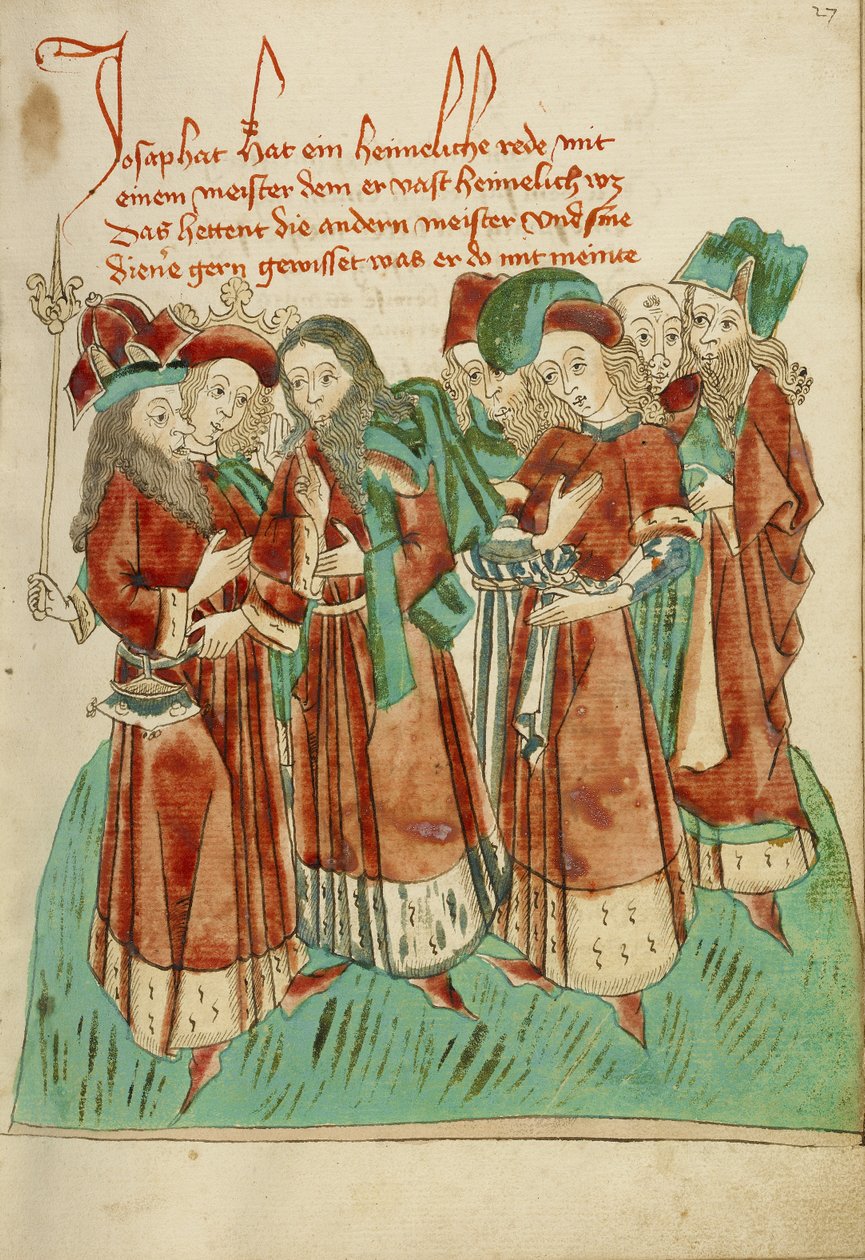 27
Josaphat hat ein heimeliche rede mit
einem meister dem er vast heimelich wz
Das hettent die andern meister Und sine
diene gern gewisset was er do mit meinte